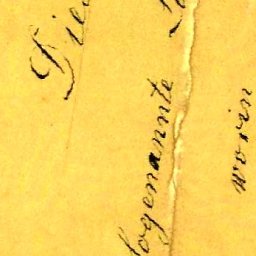 Die
sogenannte
worin